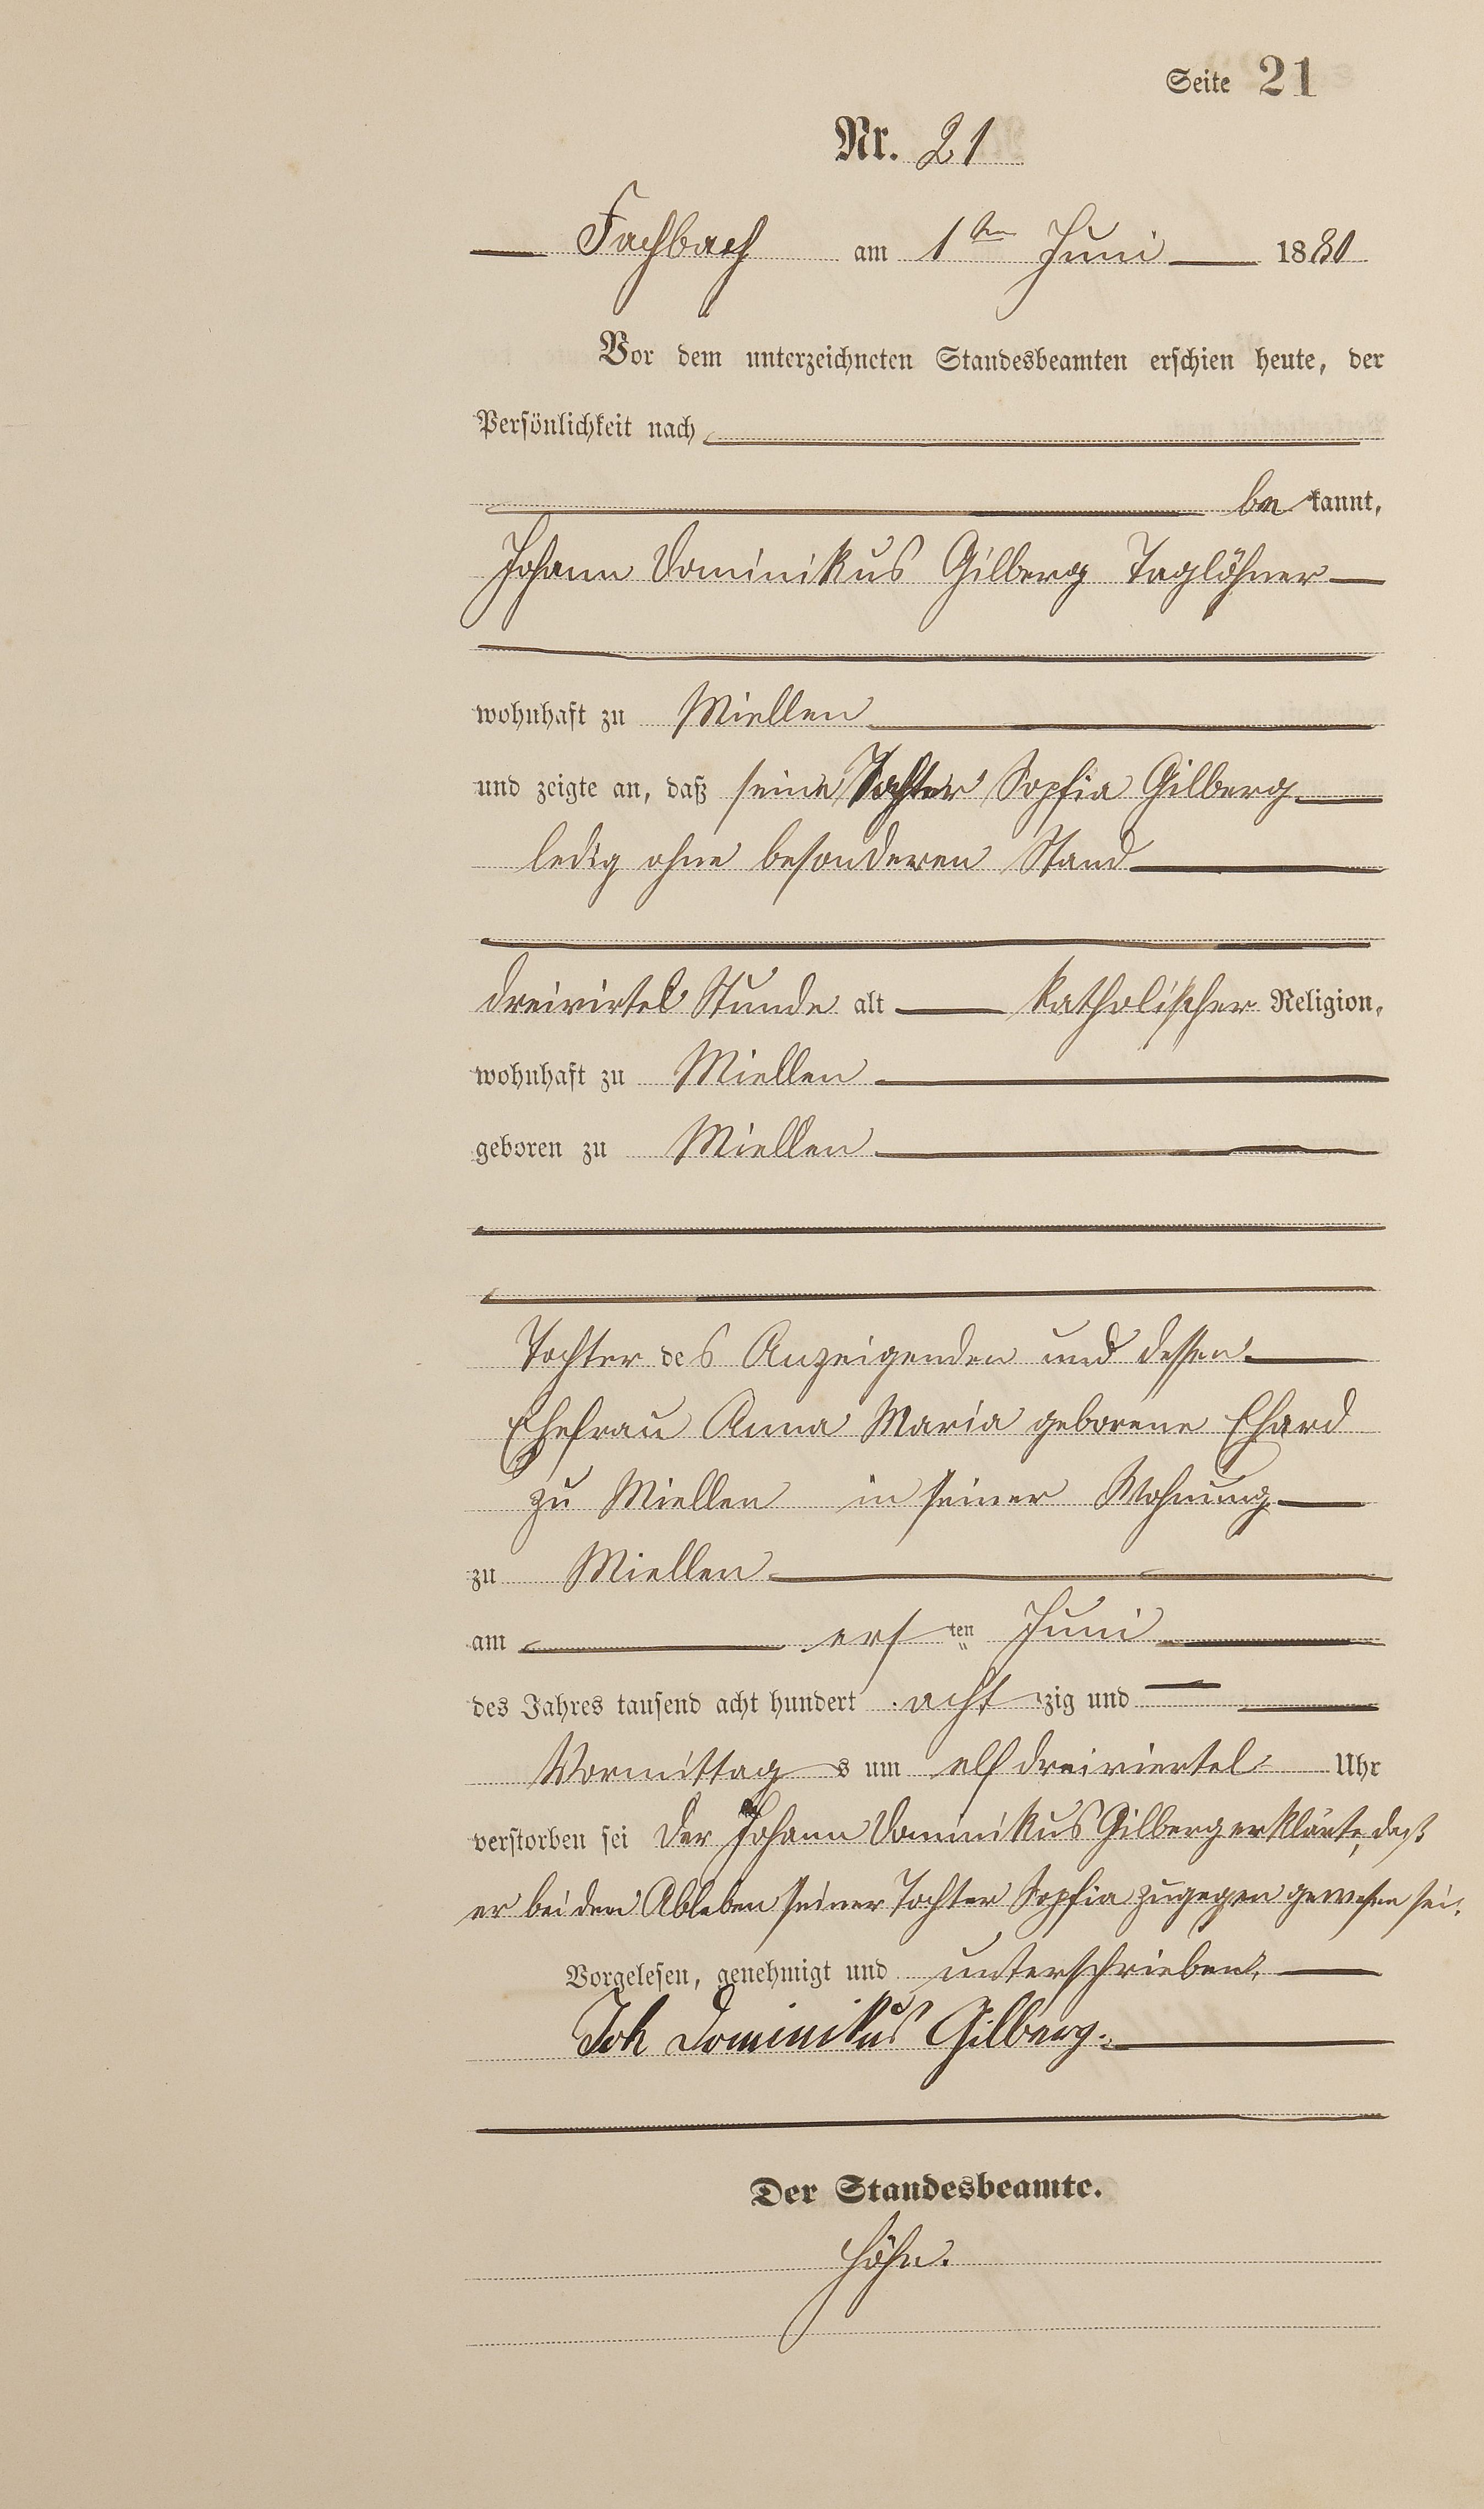 Seite 21
Nr. 21
Fachbach am 1ten Juni 1880
Vor dem unterzeichneten Standesbeamten erschien heute, der
Persönlichkeit nach
be kannt,
Johann Dominikus Gilberg Taglöhner
wohnhaft zu Miellen
und zeigte an, daß seine Tochter Sopfia Gilberg
ledig ohne besonderen Stand
dreivirtel Stunde alt katholischer Religion,
wohnhaft zu Miellen
geboren zu Miellen
Tochter des Anzeigenden und dessen
Ehefrau Anna Maria geborene Ehard
zu Miellen in seiner Wohnung
zu Miellen
am ersten Juni
des Jahres tausend acht hundert achtzig und
Vormittags um elf dreiviertel Uhr
verstorben sei der Johann Dominikus Gilberg erklärte, daß
er bei dem Ableben seiner Tochter Sopfia zugegen gewesen sei.
Vorgelesen, genehmigt und unterschrieben.
Joh Dominikus Gilberg.
Der Standesbeamte.
Höhn.